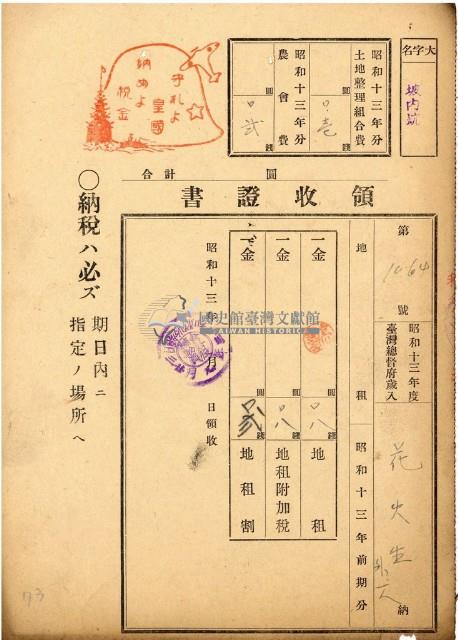 大字名
坡内坑
昭和十三年分
土地整理組合費
圓
錢
〇壱
昭和十三年分
農會費
圓
錢
〇弐
守れよ
皇國
納めよ
税金
合計
圓
領收證書
第
1064
號
昭和十三年度
臺灣總督府歳入
納
地租
昭和十三年前期分
一金
圓
〇八
錢
地租
一金
圓
〇八
錢
地租附加税
一金
圓
錢
地租割
昭和十三年
月
日領收
〇納税ハ必ズ
期日内ニ
指定ノ場所ヘ
國史館臺灣文獻館
TAIWAN HISTORICA
73